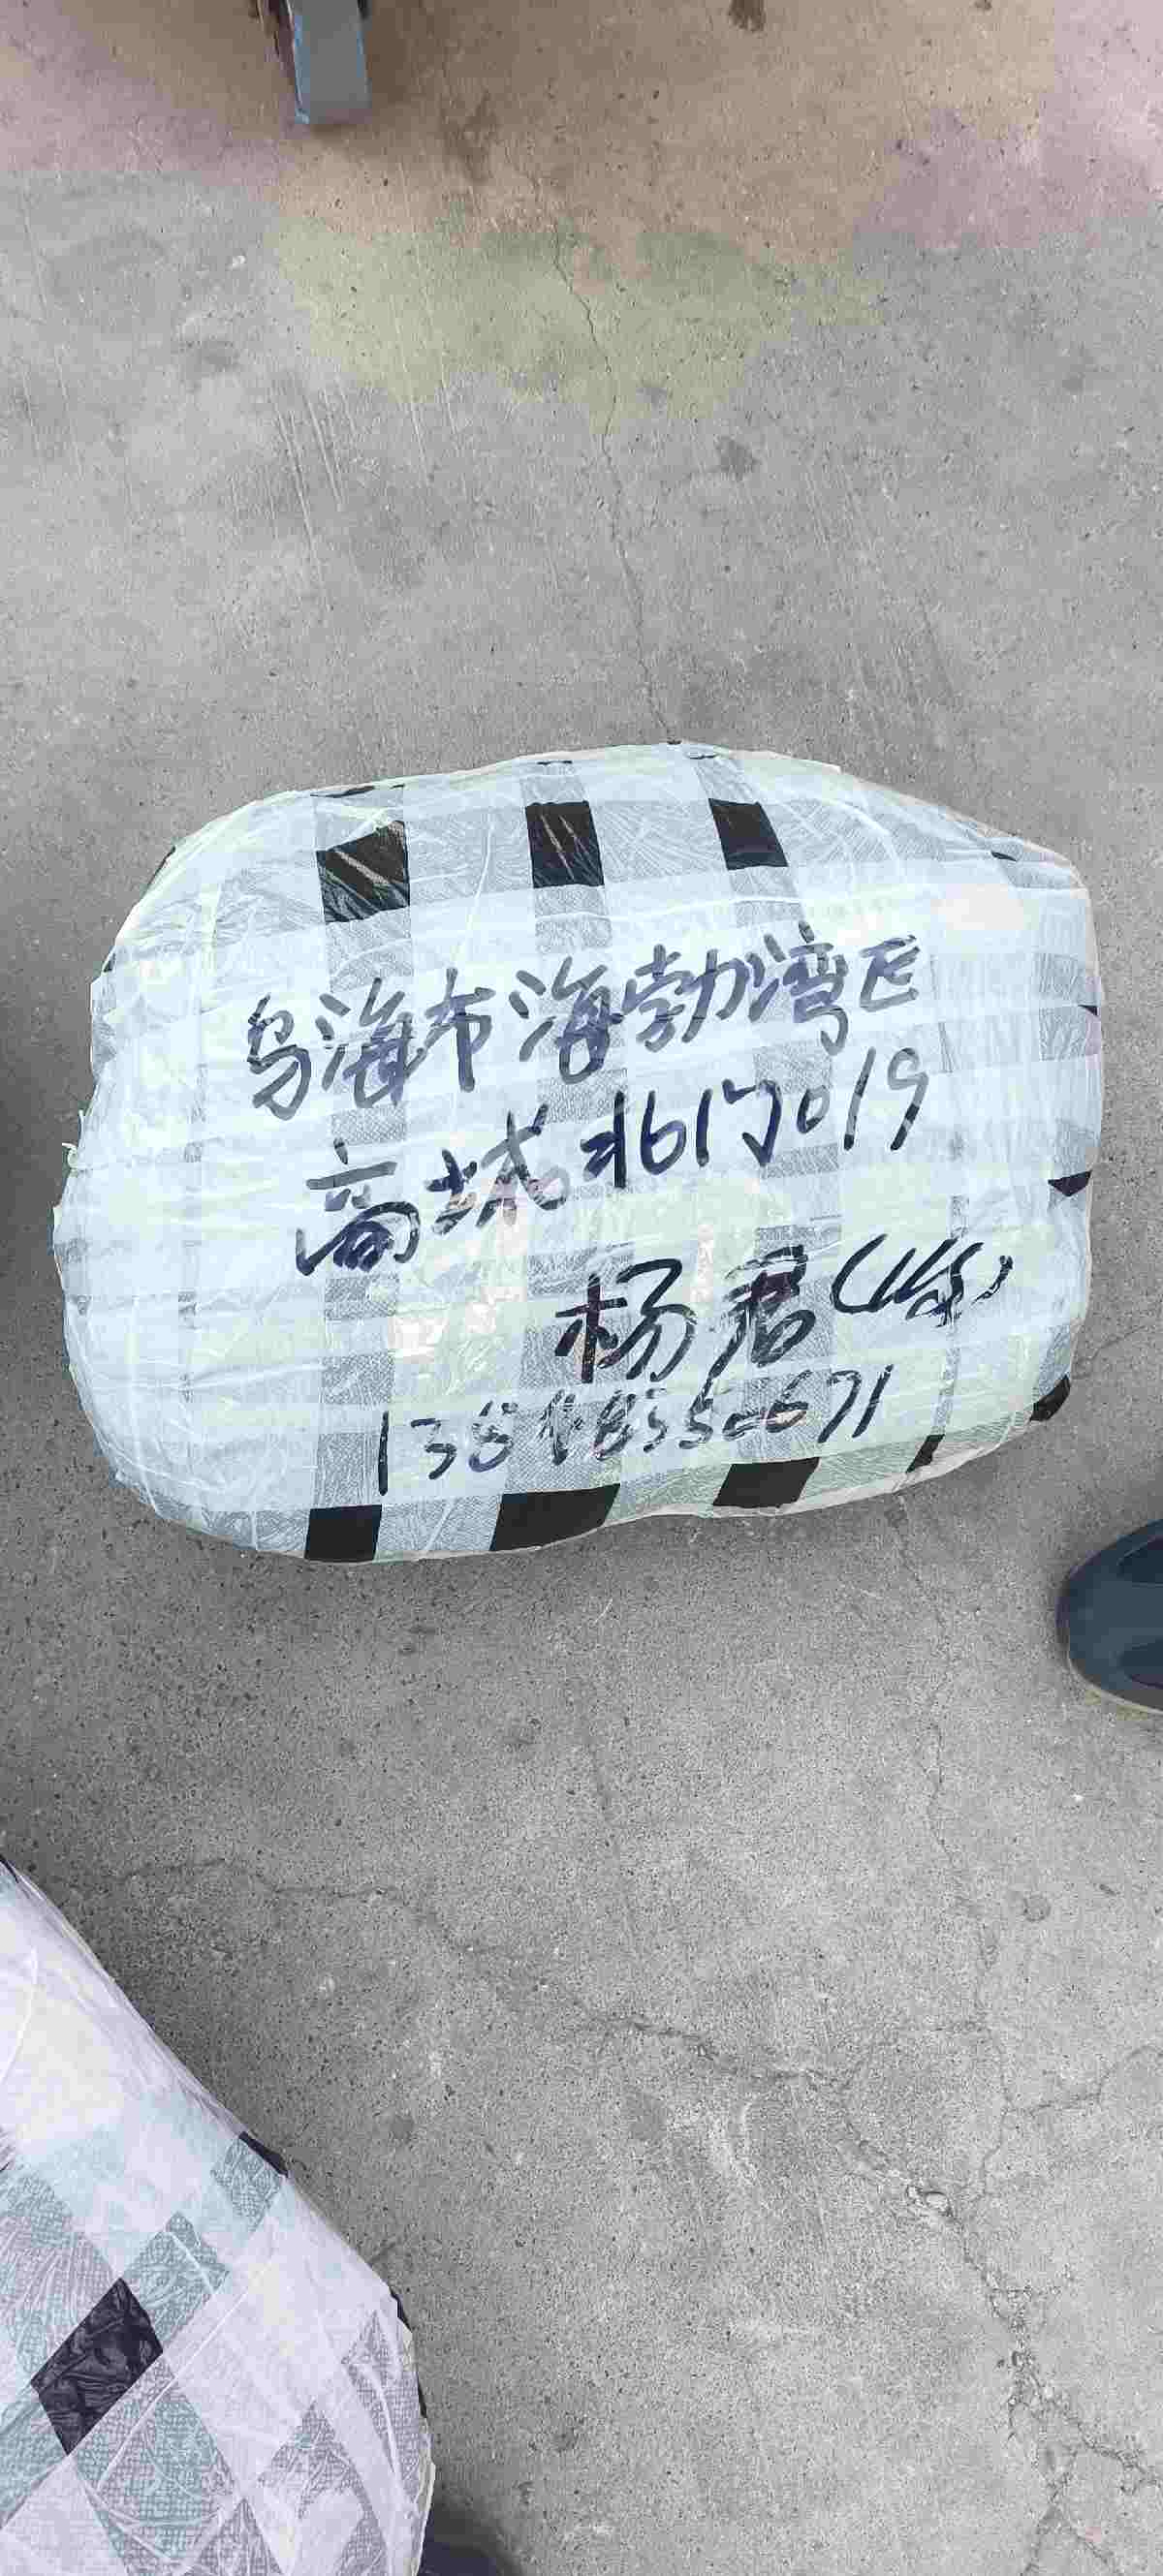 乌海市海勃湾区
商城北6门019
杨君(收)
13848350671